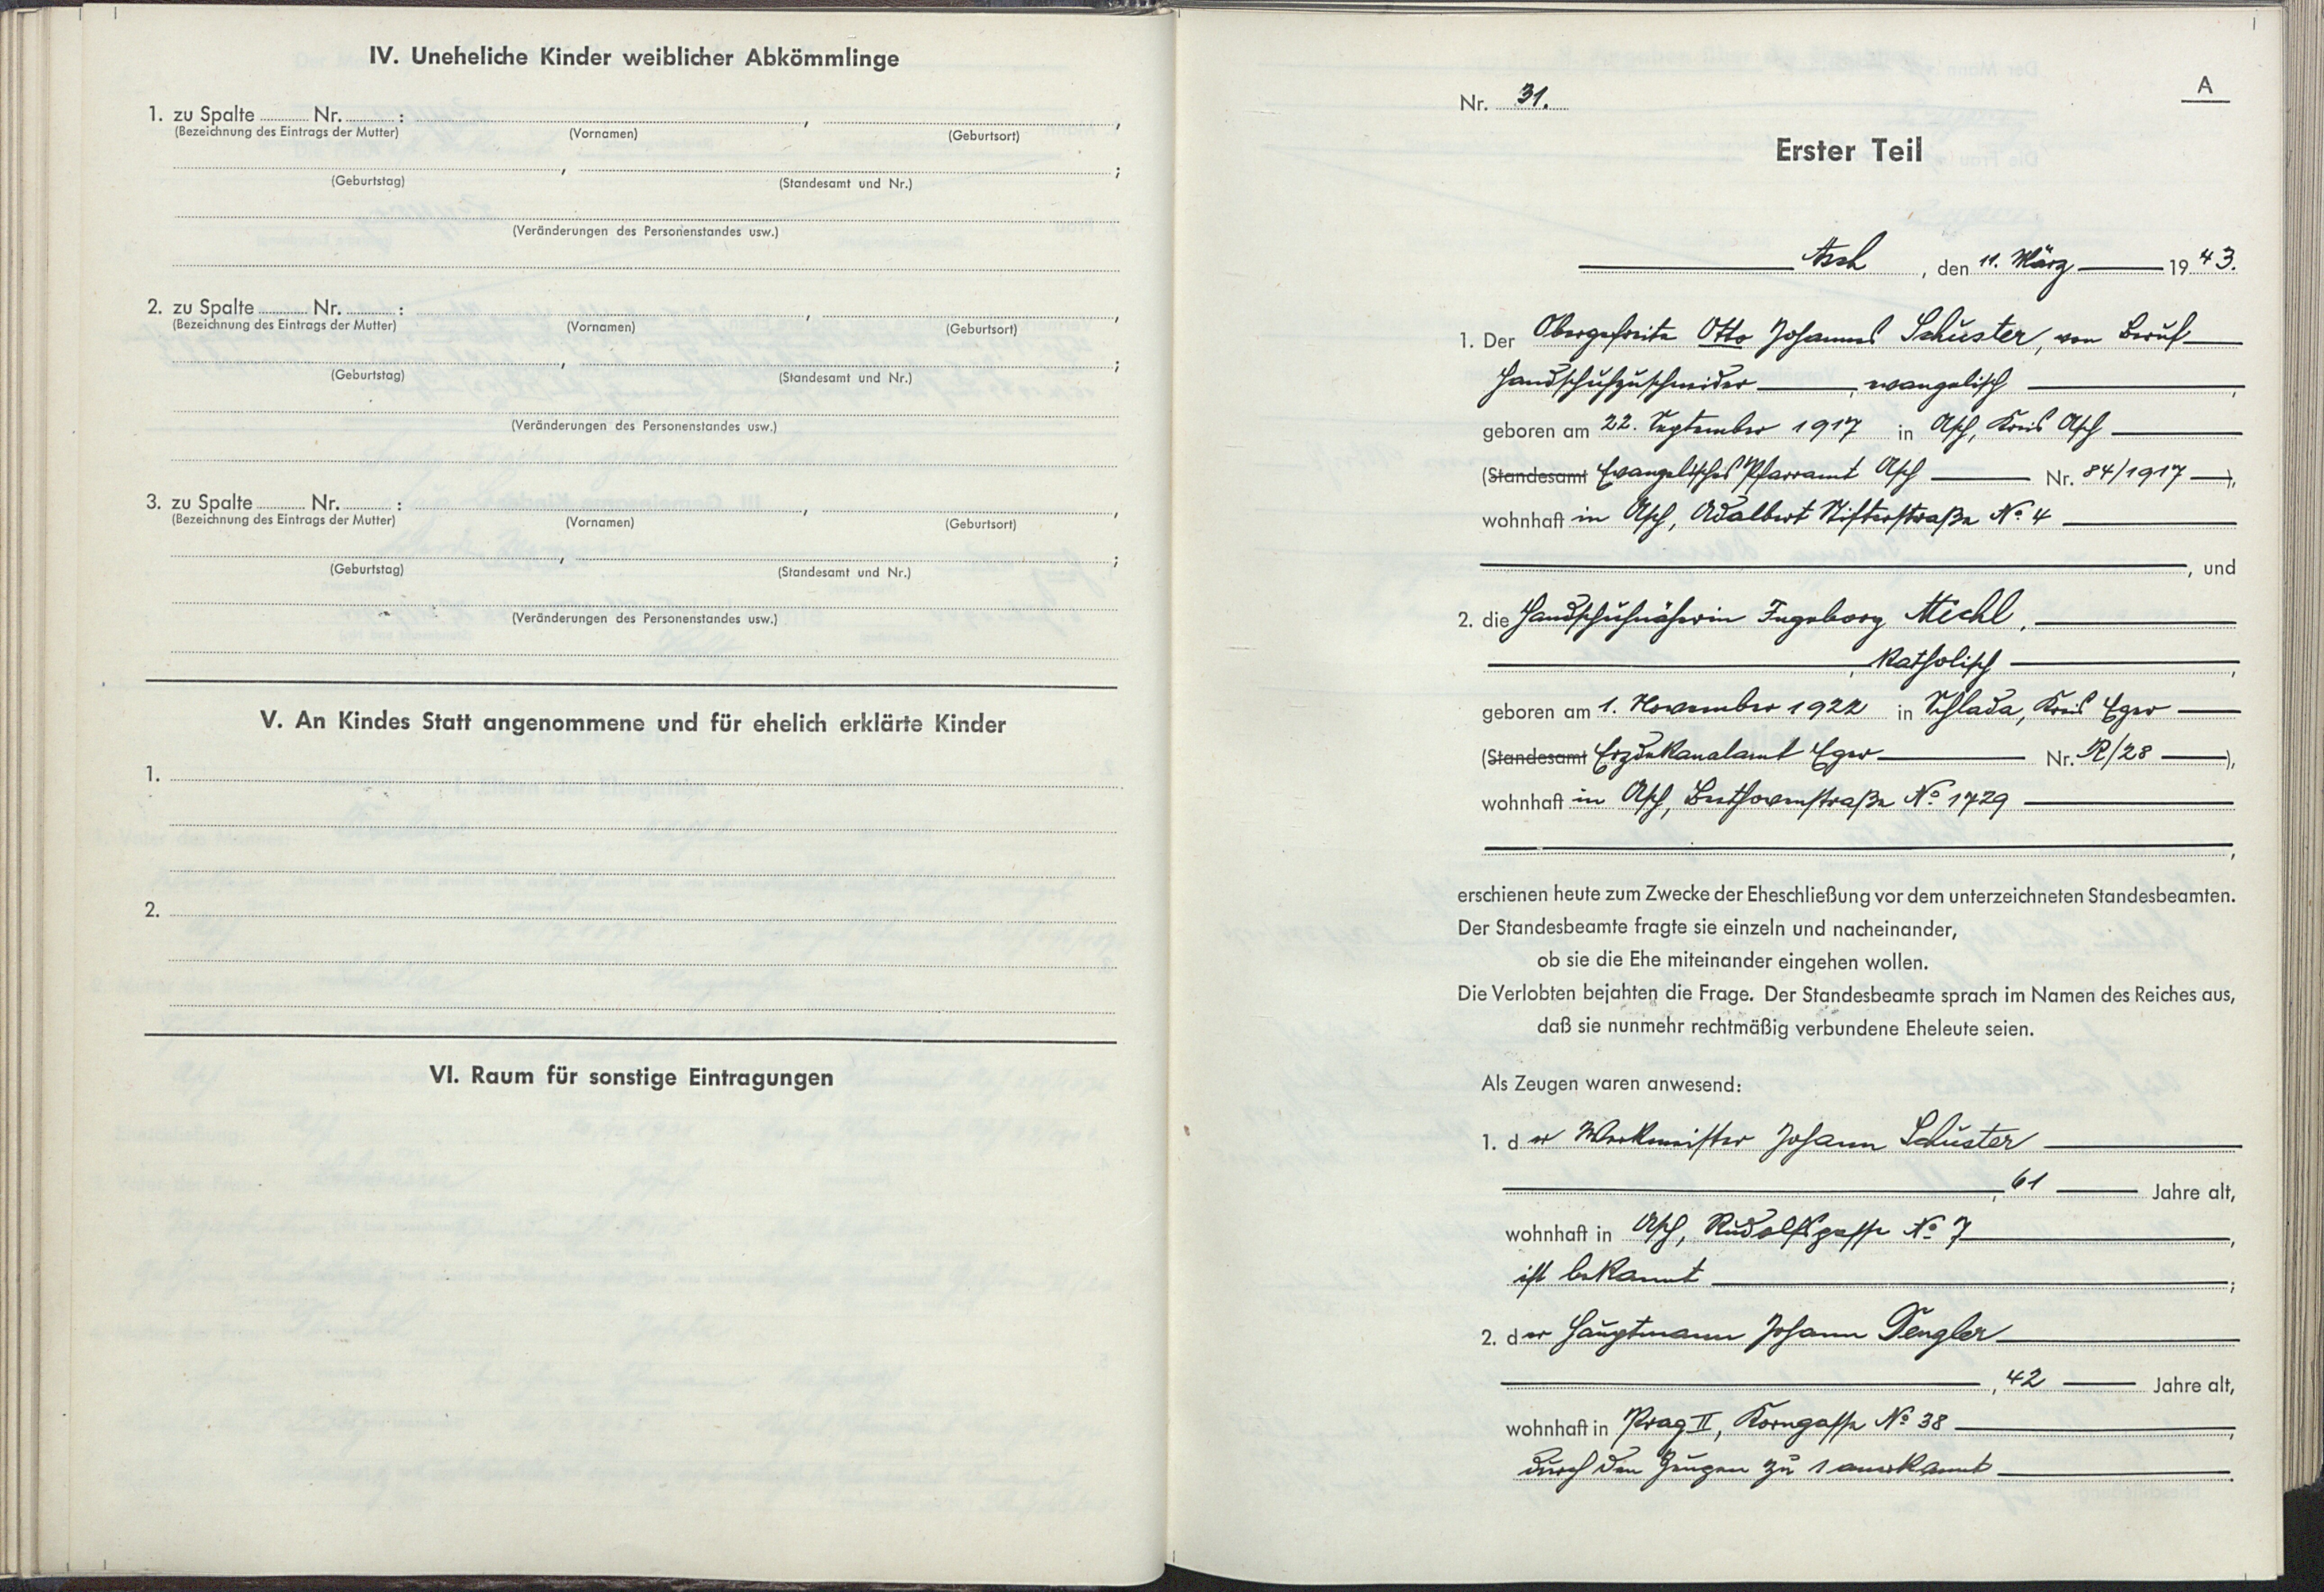 IV. Uneheliche Kinder weiblicher Abkömmlinge
1. zu Spalte Nr. : , ,
(Bezeichnung des Eintrags der Mutter) (Vornamen) (Geburtsort)
, ;
(Geburtstag) (Standesamt und Nr.)
(Veränderungen des Personenstandes usw.)
2. zu Spalte Nr. : , ,
(Bezeichnung des Eintrags der Mutter) (Vornamen) (Geburtsort)
, ;
(Geburtstag) (Standesamt und Nr.)
(Veränderungen des Personenstandes usw.)
3. zu Spalte Nr. : , ,
(Bezeichnung des Eintrags der Mutter) (Vornamen) (Geburtsort)
, ;
(Geburtstag) (Standesamt und Nr.)
(Veränderungen des Personenstandes usw.)
V. An Kindes Statt angenommene und für ehelich erklärte Kinder
1.
2.
VI. Raum für sonstige Eintragungen
A
Nr. 31.
Erster Teil
Asch, den 11. März 1943.
1. Der Obergefreite Otto Johannes Schuster, von Beruf
Handschuhzuschneider, evangelisch,
geboren am 22. September 1917 in Asch, Kreis Asch
(Standesamt Evangelisches Pfarramt Asch Nr. 84/1917),
wohnhaft in Asch, Adalbert Stifterstraße No 4
, und
2. die Handschuhnäherin Ingeborg Michl,
, katholisch,
geboren am 1. November 1922 in Schlada, Kreis Eger
(Standesamt Erzdekanalamt Eger Nr. R/28),
wohnhaft in Asch, Beethovenstraße No 1729
,
erschienen heute zum Zwecke der Eheschließung vor dem unterzeichneten Standesbeamten.
Der Standesbeamte fragte sie einzeln und nacheinander,
ob sie die Ehe miteinander eingehen wollen.
Die Verlobten bejahten die Frage. Der Standesbeamte sprach im Namen des Reiches aus,
daß sie nunmehr rechtmäßig verbundene Eheleute seien.
Als Zeugen waren anwesend:
1. der Werkmeister Johann Schuster
, 61 Jahre alt,
wohnhaft in Asch, Rudolfsgasse No 7,
ist bekannt;
2. der Hauptmann Johann Dengler
, 42 Jahre alt,
wohnhaft in Prag II, Korngasse No 38,
durch den Zeugen zu 1 anerkannt.